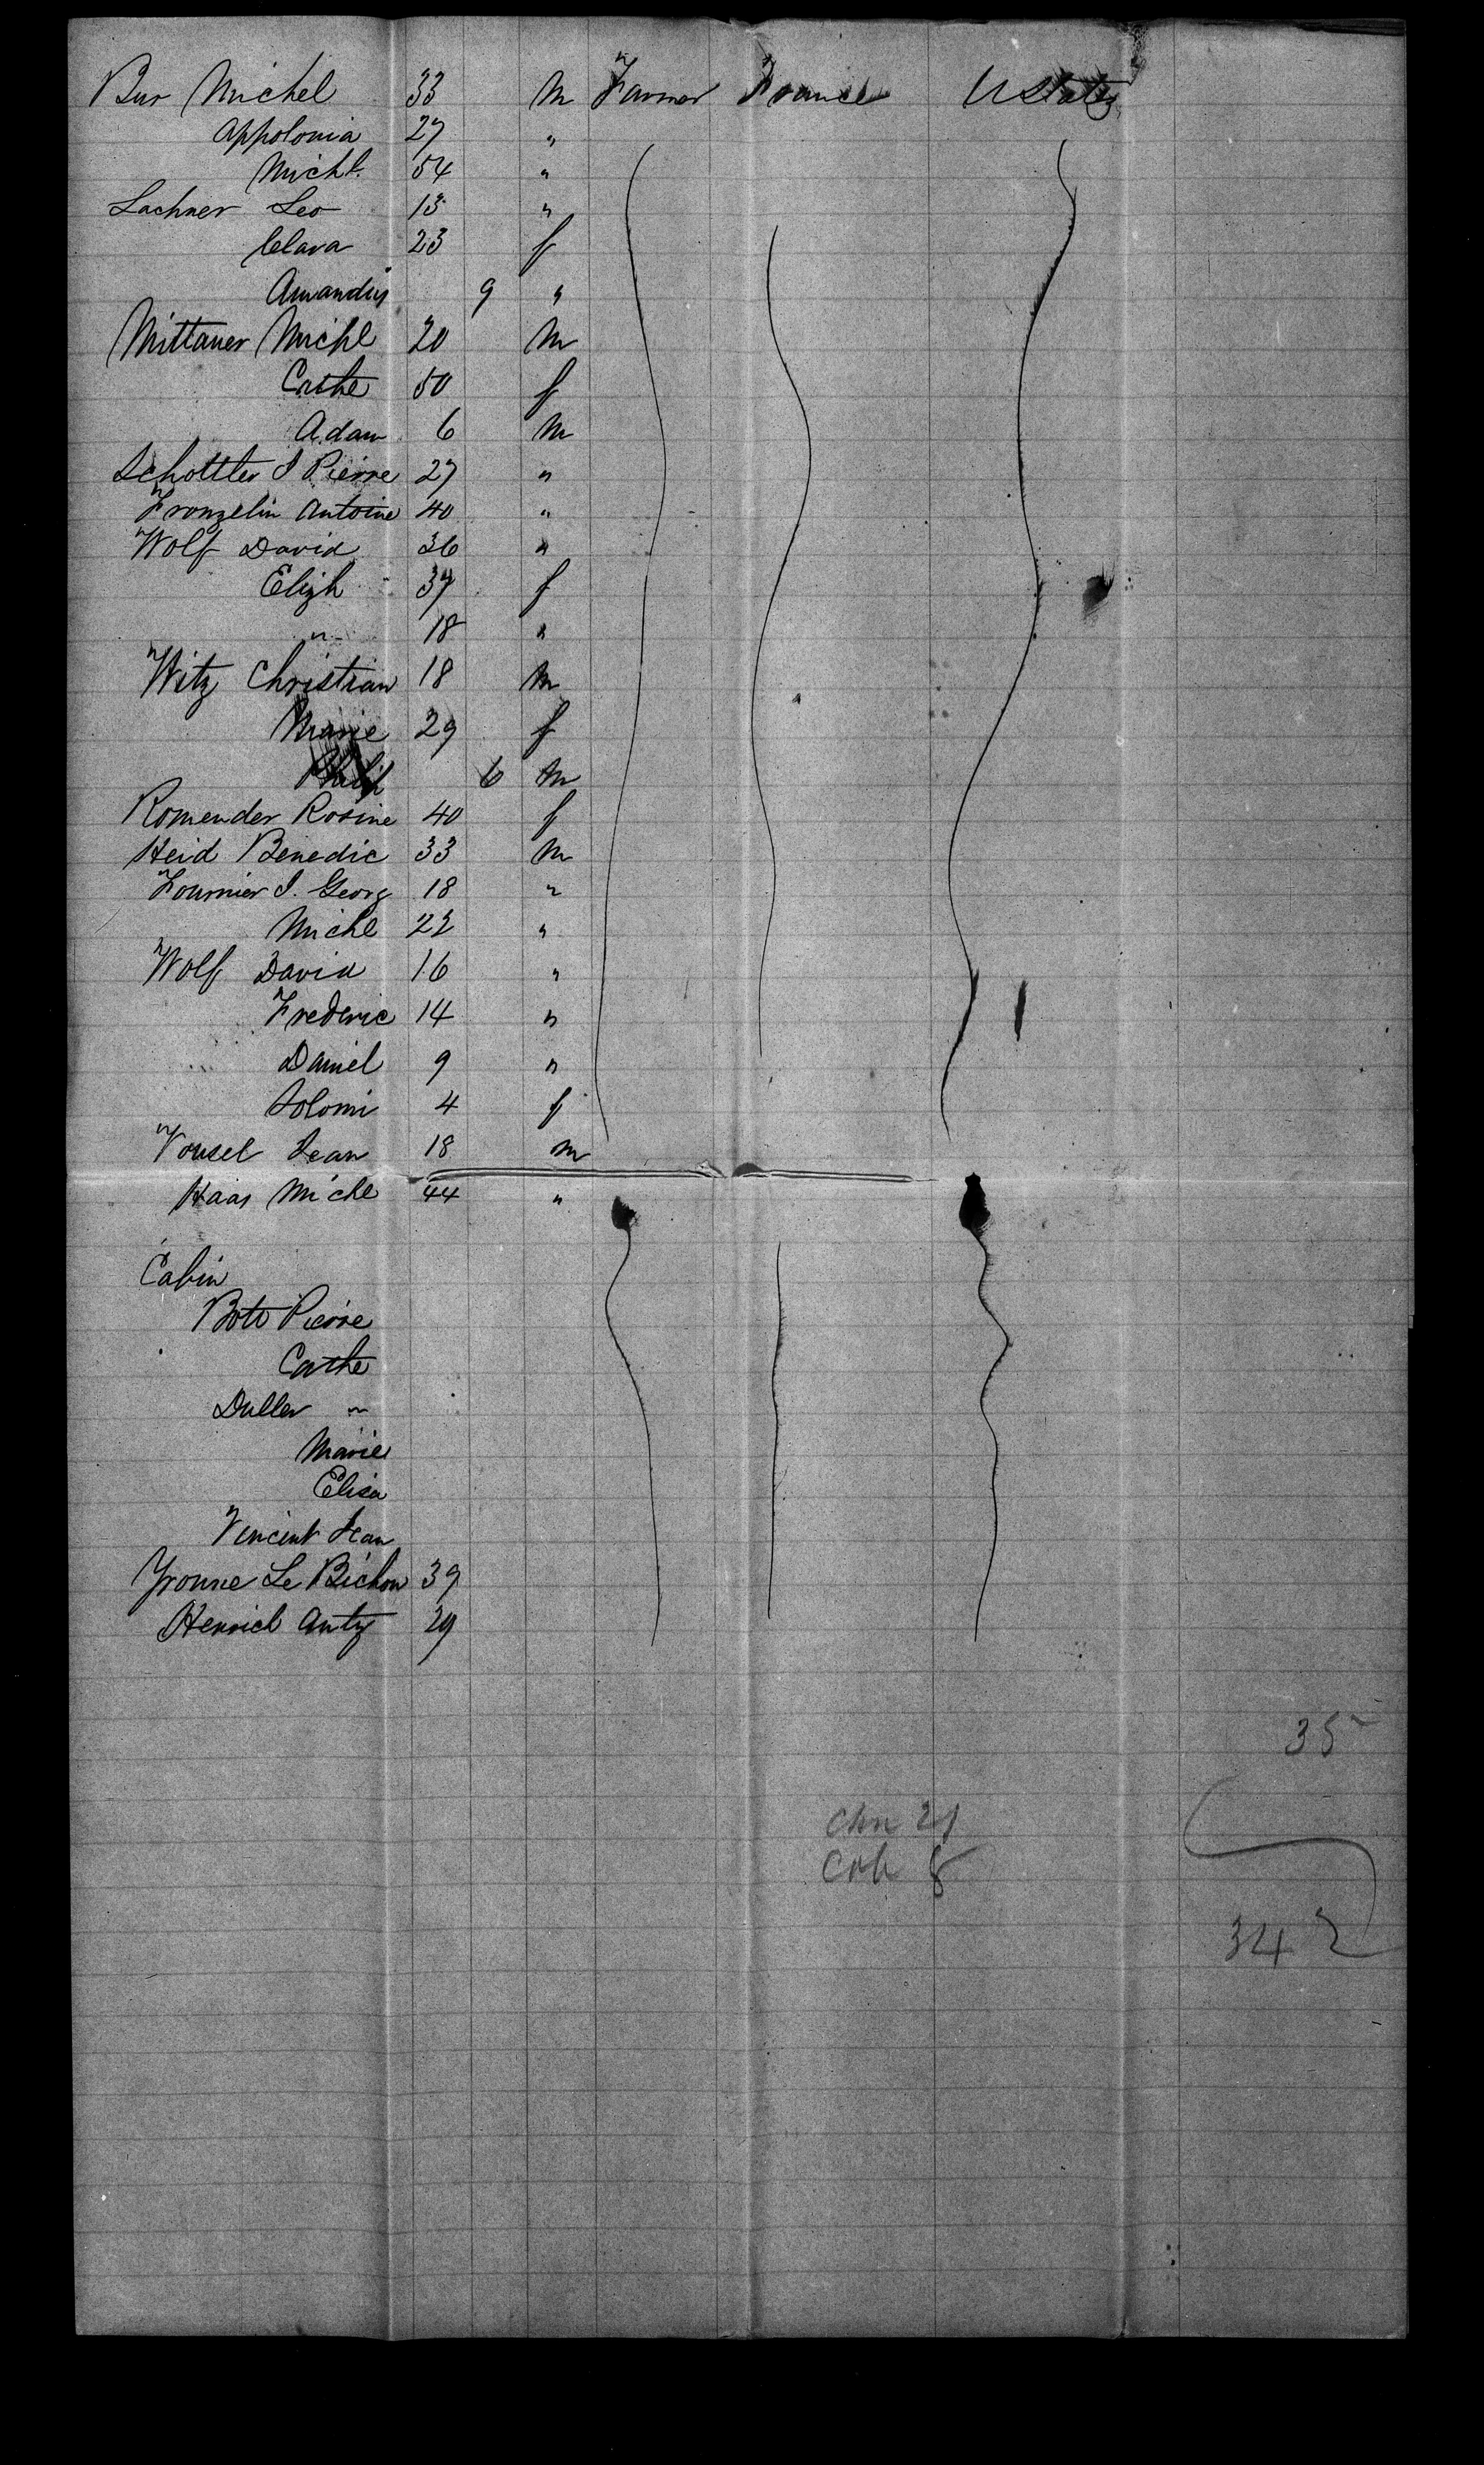 Bur Michel 33 m Farmer France U States
Appolonia 27 "
Michl. 54 "
Lachner Leo 13 "
Clara 23 f
Amandus 9 "
Mittauer Michl 20 m
Cathe 50 f
Adam 6 m
Schottler J Pierre 27 "
Fronzelin Antoine 40 "
Wolf David 36 "
Elizh 37 f
" 18 "
Witz Christian 18 m
Marie 29 f
6 m
Romender Rosine 40 f
Heid Benedic 33 m
Fournier J. Georg 18 "
Michl 22 "
Wolf David 16 "
Frederic 14 "
Daniel 9 "
Solomi 4 f
Vousel Jean 18 m
Haas Michl 44 "
Cabin
Bott Pierre
Cathe
Duller "
Marie
Elisa
Vincent Jean
Yvonne Le Bichon 39
Henrich Antz 29
35
21
8
342